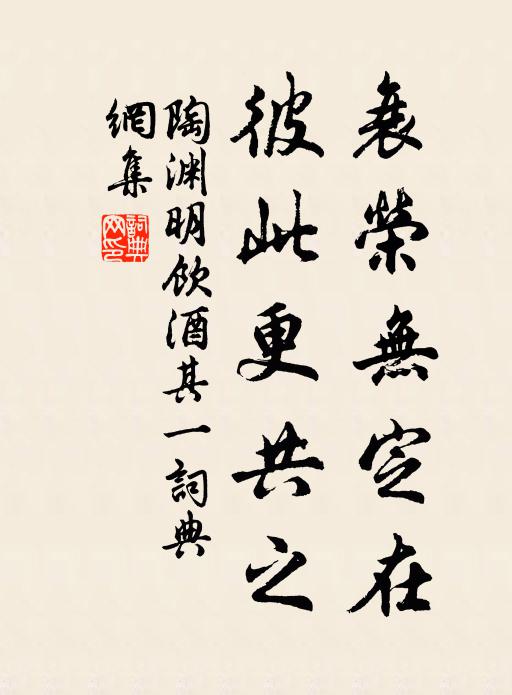 衰榮無定在
彼此更共之
陶渊明飲酒其一詞典
網集
詞典
网印